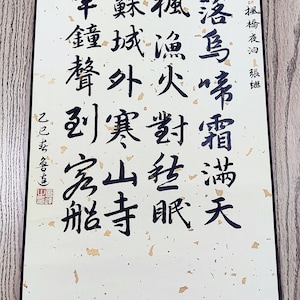 楓橋夜泊 張繼
落烏啼霜滿天
楓漁火對愁眠
蘇城外寒山寺
半鐘聲到客船
乙巳春